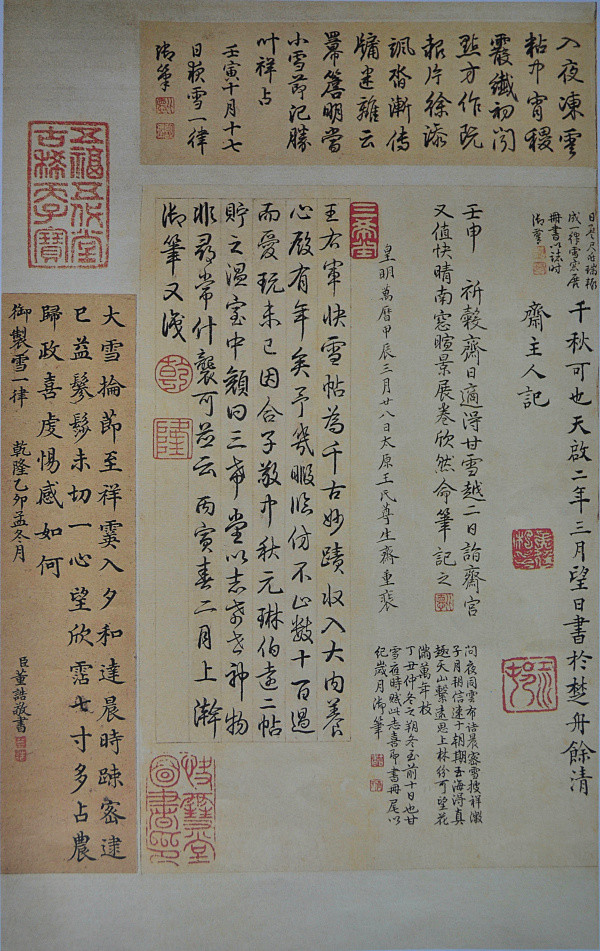 入夜凍雲
粘中宵稷
霰纖初闻
點方作
報片徐添
颯沓漸傳
牖迷離云
羃簷明當
小雪節記勝
叶祥占
壬寅十月十七
日夜雪一律
御筆
成一律雪窓展
冊書以誌時
御筆
千秋可也天啟二年三月望日書於楚舟餘清
齋主人記
江邨
壬申 祈穀齋日適得甘雪越二日詣齋宮
又值快晴南窓暄景展卷欣然命筆記之
夜同雲布詰晨密雪披祥徵
子月朔信達十朝期玉海得真
趣天山繫遠思上林紛可望花
滿萬年枝
丁丑仲冬之朔冬至前十日也甘
雪應時賦此志喜即書冊尾以
紀歲月御筆
皇明萬曆甲辰三月廿八日太原王氏尊生齋重裝
三希堂
王右軍快雪帖為千古妙蹟收入大內養
心殿有年矣予幾暇臨仿不止數十百過
而愛玩未已因合子敬中秋元琳伯遠二帖
貯之溫室中顏曰三希堂以志希世神物
非尋常什襲可並云丙寅春二月上澣
御筆又識
乾
隆
五福五代堂
古稀天子寶
大雪掄節至祥霙入夕和達晨時踈密逮
已益鬖髿未切一心望欣霑七寸多占農
歸政喜虔惕感如何
御製雪一律 乾隆乙卯孟冬月
臣董誥敬書